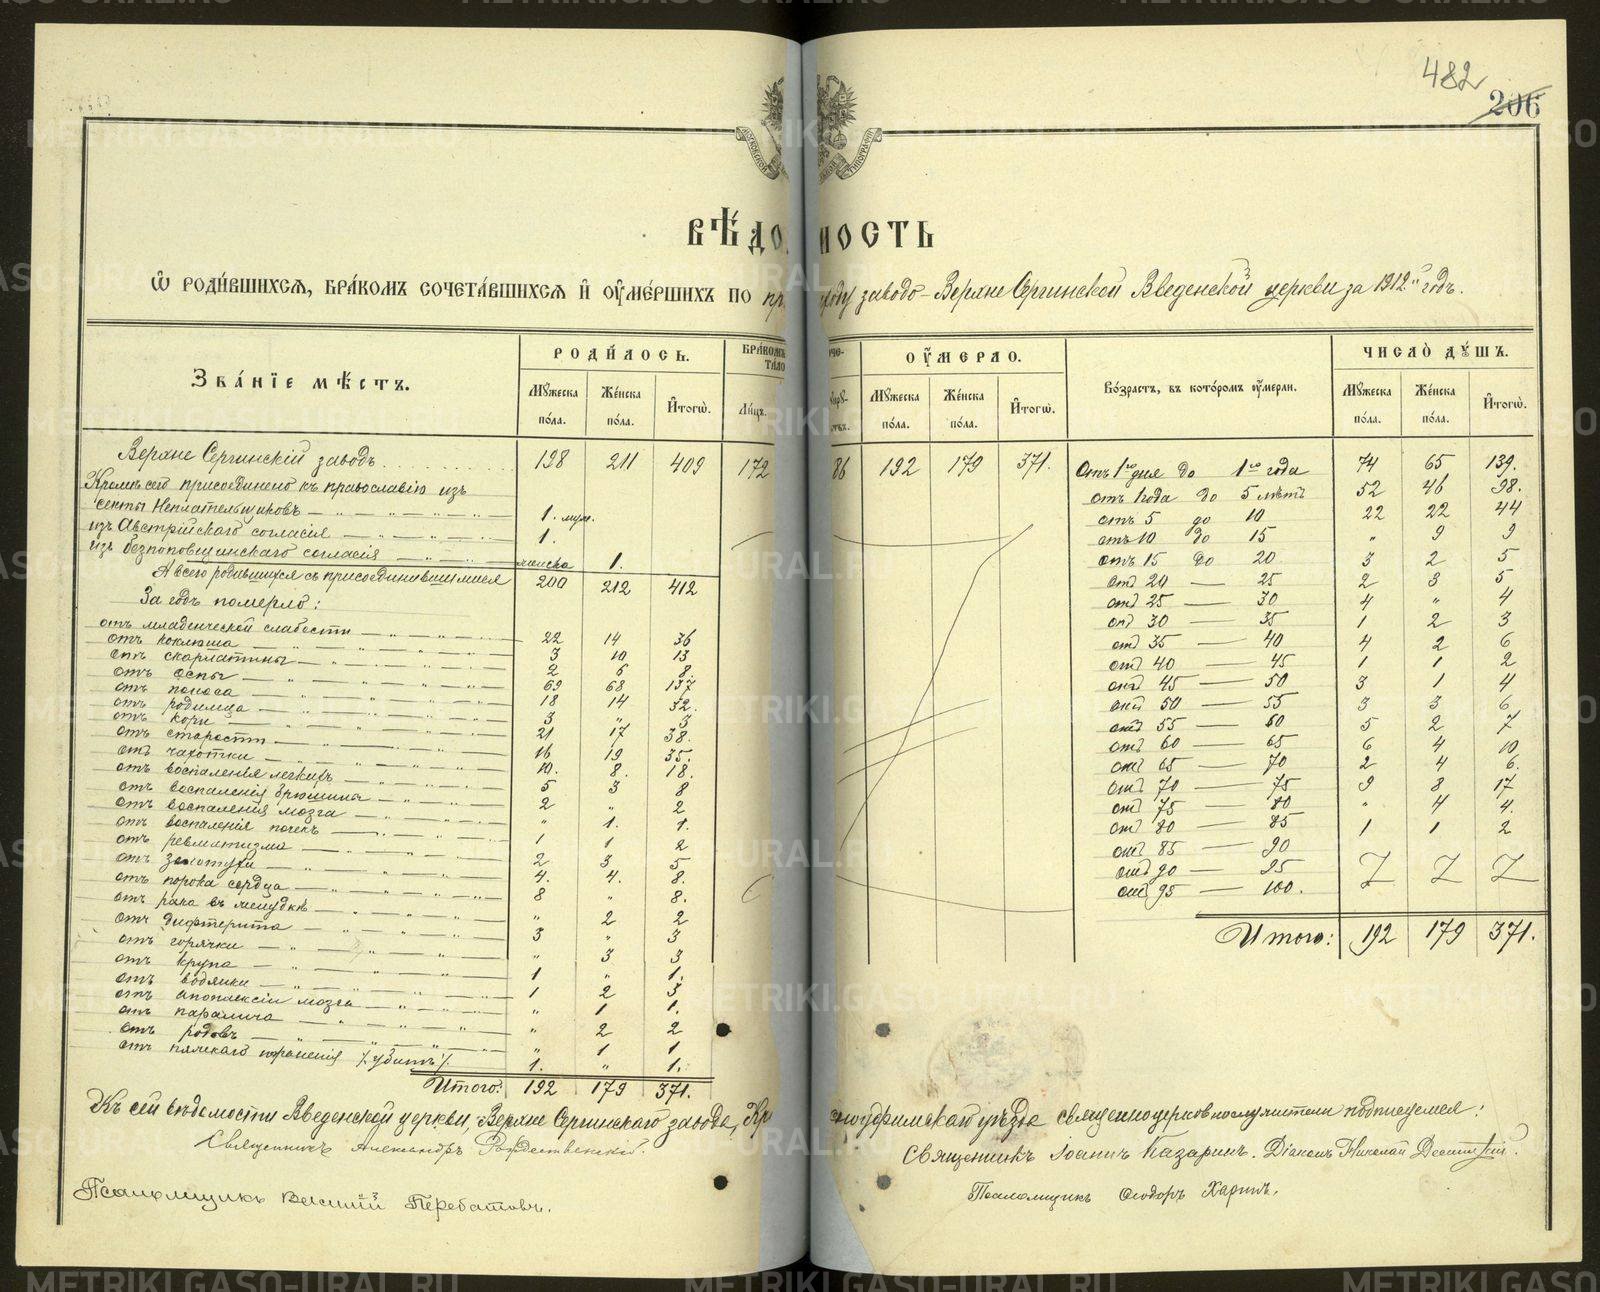 482
206
МОСКОВСКОЙ
ТИПОГРАФІИ
ВѢДО НОСТЬ
Ѡ РОДИ́ВШИХСЯ, БРА́КОМЪ СОЧЕТА́ВШИХСЯ И҆ ОУ҆МЕ́РШИХЪ ПО пр ходу заводо-Верхне Сергинской Введенской церкви за 1912й годъ.
Зва́нїе мѣ́стъ.
РОДИ́ЛОСЬ.
БРА́КОМЪ СОЧЕ-
ТА́ЛО
ОУ҆́МЕРЛО.
Во́зрастъ, въ кото́ромъ оу҆́мерли.
ЧИСЛО̀ ДꙊШЪ.
Мꙋ́жеска по́ла. Же́нска по́ла. И҆того̀. Ли́цъ. Мꙋ́жеска по́ла. Же́нска по́ла. И҆того̀. Мꙋ́жеска по́ла. Же́нска по́ла. И҆того̀.
Верхне Сергинскій заводъ 198 211 409 172 86 192 179 371.
Кромѣ сего присоединено къ православію изъ
секты Неплательщиковъ 1. муж.
изъ Австрійскаго согласія 1.
изъ безпоповщинскаго согласія женска 1.
А всего родившихся съ присоединившимися 200 212 412
За годъ померло:
отъ младенческой слабости 22 14 36
отъ коклюша 3 10 13
отъ скарлатины 2 6 8
отъ оспы 69 68 137
отъ поноса 18 14 32.
отъ родимца 3 " 3
отъ кори 21 17 38.
отъ старости 16 19 35.
отъ чахотки 10. 8. 18.
отъ воспаленія легкихъ 5 3 8
отъ воспаленія брюшины 2 " 2
отъ воспаленія мозга " 1. 1.
отъ воспаленія почекъ 1 1 2
отъ ревматизма 2 3 5
отъ золотухи 4. 4. 8.
отъ порока сердца 8 " 8.
отъ рака въ желудкѣ " 2 2
отъ дифтерита 3 " 3
отъ горячки " 3 3
отъ крупа 1 " 1.
отъ водянки 1 2 3
отъ апоплексіи мозга " 1 1.
отъ паралича " 2 2
отъ родовъ " 1 1
отъ тяжкаго пораненія /убитъ/. 1. " 1.
Итого: 192 179 371.
Отъ 1го дня до 1го года 74 65 139.
отъ 1 года до 5 лѣтъ 52 46 98.
отъ 5 до 10 22 22 44
отъ 10 до 15 " 9 9
отъ 15 до 20 3 2 5
отъ 20 — 25 2 3 5
отъ 25 — 30 4 " 4
отъ 30 — 35 1 2 3
отъ 35 — 40 4 2 6
отъ 40 — 45 1 1 2
отъ 45 — 50 3 1 4
отъ 50 — 55 3 3 6
отъ 55 — 60 5 2 7
отъ 60 — 65 6 4 10
отъ 65 — 70 2 4 6.
отъ 70 — 75 9 8 17
отъ 75 — 80 " 4 4.
отъ 80 — 85 1 1 2
отъ 85 — 90
отъ 90 — 95
отъ 95 — 100.
Итого: 192 179 371.
Къ сей вѣдомости Введенской церкви, Верхне Сергинскаго завода, Кр сноуфимскаго уѣзда священноцерковнослужители подписуемся:
Священникъ Александръ Рождественскій.
Священникъ Іоаннъ Казаринъ. Діаконъ Николай
Псаломщикъ Василій Перебатовъ.
Псаломщикъ Ѳеодоръ Харинъ.
METRIKI.GASO-URAL.RU